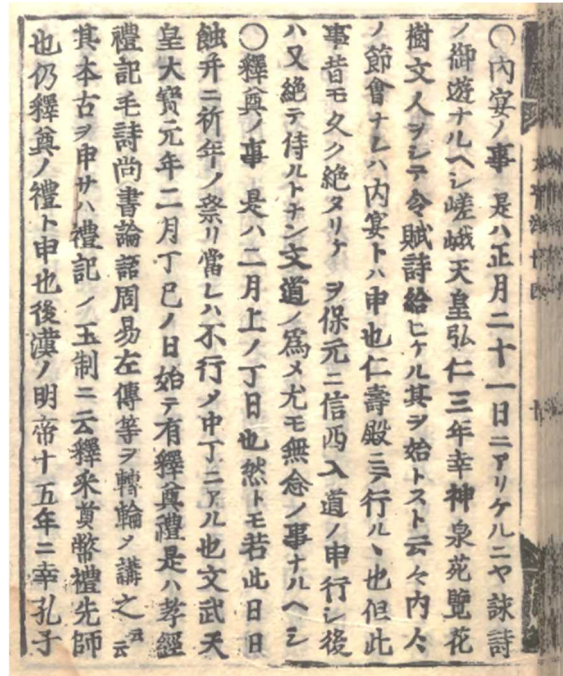 〇内宴ノ事　是ハ正月二十一日ニアリケルニヤ詠詩
ノ御遊ナルヘシ嵯峨天皇弘仁三年幸神泉苑覽花
樹文人ヲシテ令賦詩給ヒケル其ヲ始トスト云々内々
ノ節會ナレハ内宴トハ申也仁壽殿ニテ行ルヽ也但此
事昔モ久ク絶タリケヲ保元ニ信西入道ノ申行シ後
ハ又絶テ侍ルトナン文道ノ爲メ尤モ無念ノ事ナルヘシ
〇釋奠ノ事　是ハ二月上ノ丁日也然トモ若此日日
蝕幷ニ祈年ノ祭リ當レハ不行〆中丁ニアル也文武天
皇大寶元年二月丁巳ノ日始テ有釋奠禮是ハ孝經
禮記毛詩尚書論語周易左傳等ヲ轉輪〆講之云云
其本古ヲ申サハ禮記ノ王制ニ云釋釆奠幣禮先師
也仍釋奠ノ禮ト申也後漢ノ明帝十五年ニ幸孔子